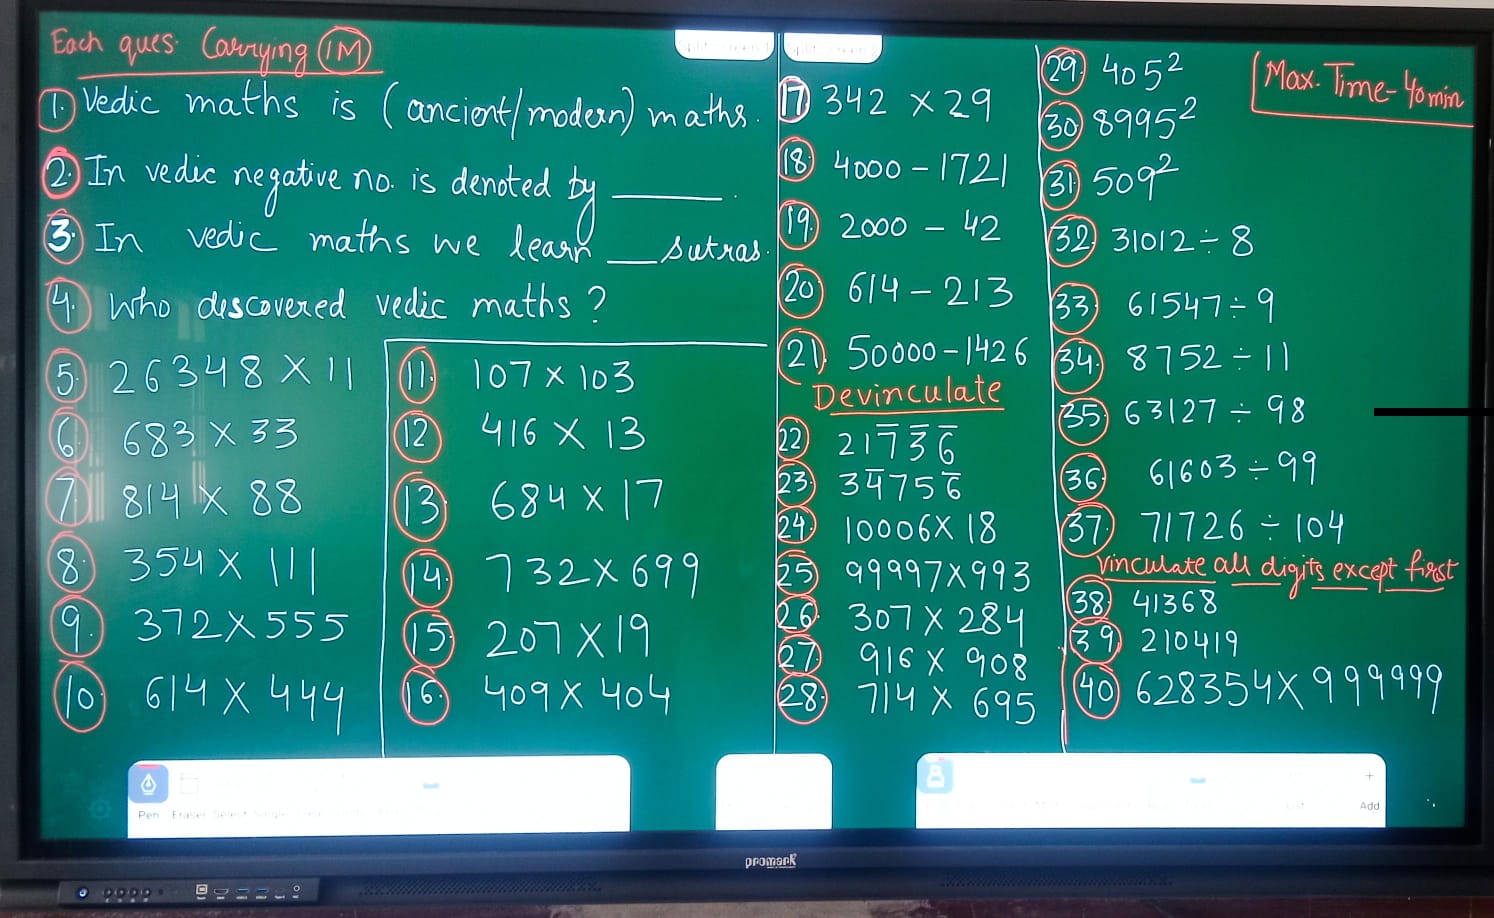 Each ques. Carrying 1M
1. Vedic maths is (ancient/modern) maths.
2. In vedic negative no. is denoted by ______.
3. In vedic maths we learn ___ sutras.
4. Who descovered vedic maths ?
5. 26348 × 11
6. 683 × 33
7. 814 × 88
8. 354 × 111
9. 372 × 555
10. 614 × 444
11. 107 × 103
12 416 × 13
13. 684 × 17
14. 732 × 699
15. 207 × 19
16. 409 × 404
17) 342 × 29
18. 4000 - 1721
19. 2000 - 42
20. 614 - 213
21). 50000 - 1426
Devinculate
22 217̅3̅6̅
23. 34̅756̅
24. 10006 × 18
25 99997 × 993
26. 307 × 284
27. 916 × 908
28. 714 × 695
29. 405²
30 8995²
31. 509²
32. 31012 ÷ 8
33. 61547 ÷ 9
34. 8752 ÷ 11
35. 63127 ÷ 98
36. 61603 ÷ 99
37. 71726 ÷ 104
Vinculate all digits except first
38. 41368
39. 210419
40 628354 × 999999
Max. Time - 40 min
Pen Eraser Select
Add
promark